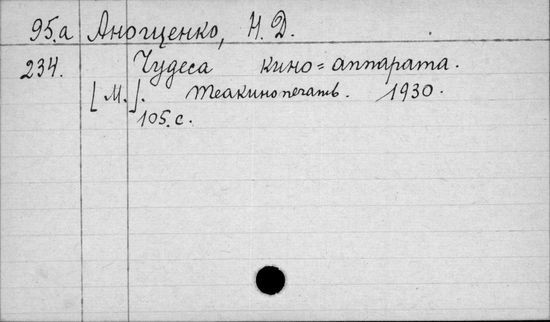 95.а Анощенко, Н. Д.
234. Чудеса кино=аппарата.
[М.]. Теакинопечать. 1930.
105.с.